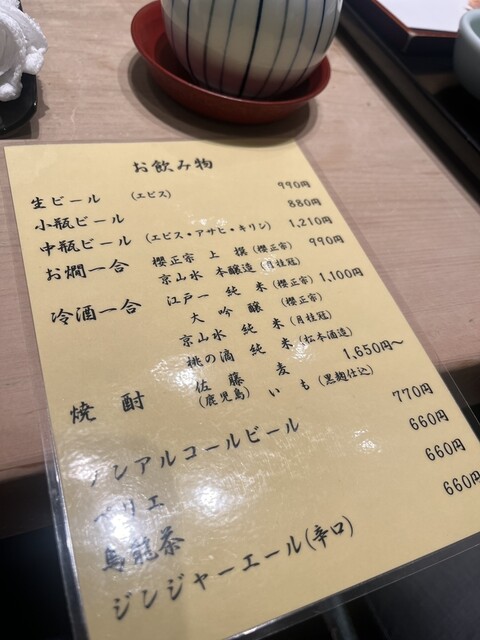 お飲み物
生ビール (エビス) 990円
小瓶ビール 880円
中瓶ビール (エビス・アサヒ・キリン) 1,210円
お燗一合 櫻正宗 上 撰 (櫻正宗) 990円
京山水 本醸造 (月桂冠)
冷酒一合 江戸一 純 米 (櫻正宗) 1,100円
大 吟 醸 (櫻正宗)
京山水 純 米 (月桂冠)
桃の滴 純 米 (松本酒造)
焼 酎 佐 藤 麦 1,650円〜
(鹿児島) い も (黒麹仕込)
ノンアルコールビール 770円
ペリエ 660円
烏龍茶 660円
ジンジャーエール(辛口) 660円